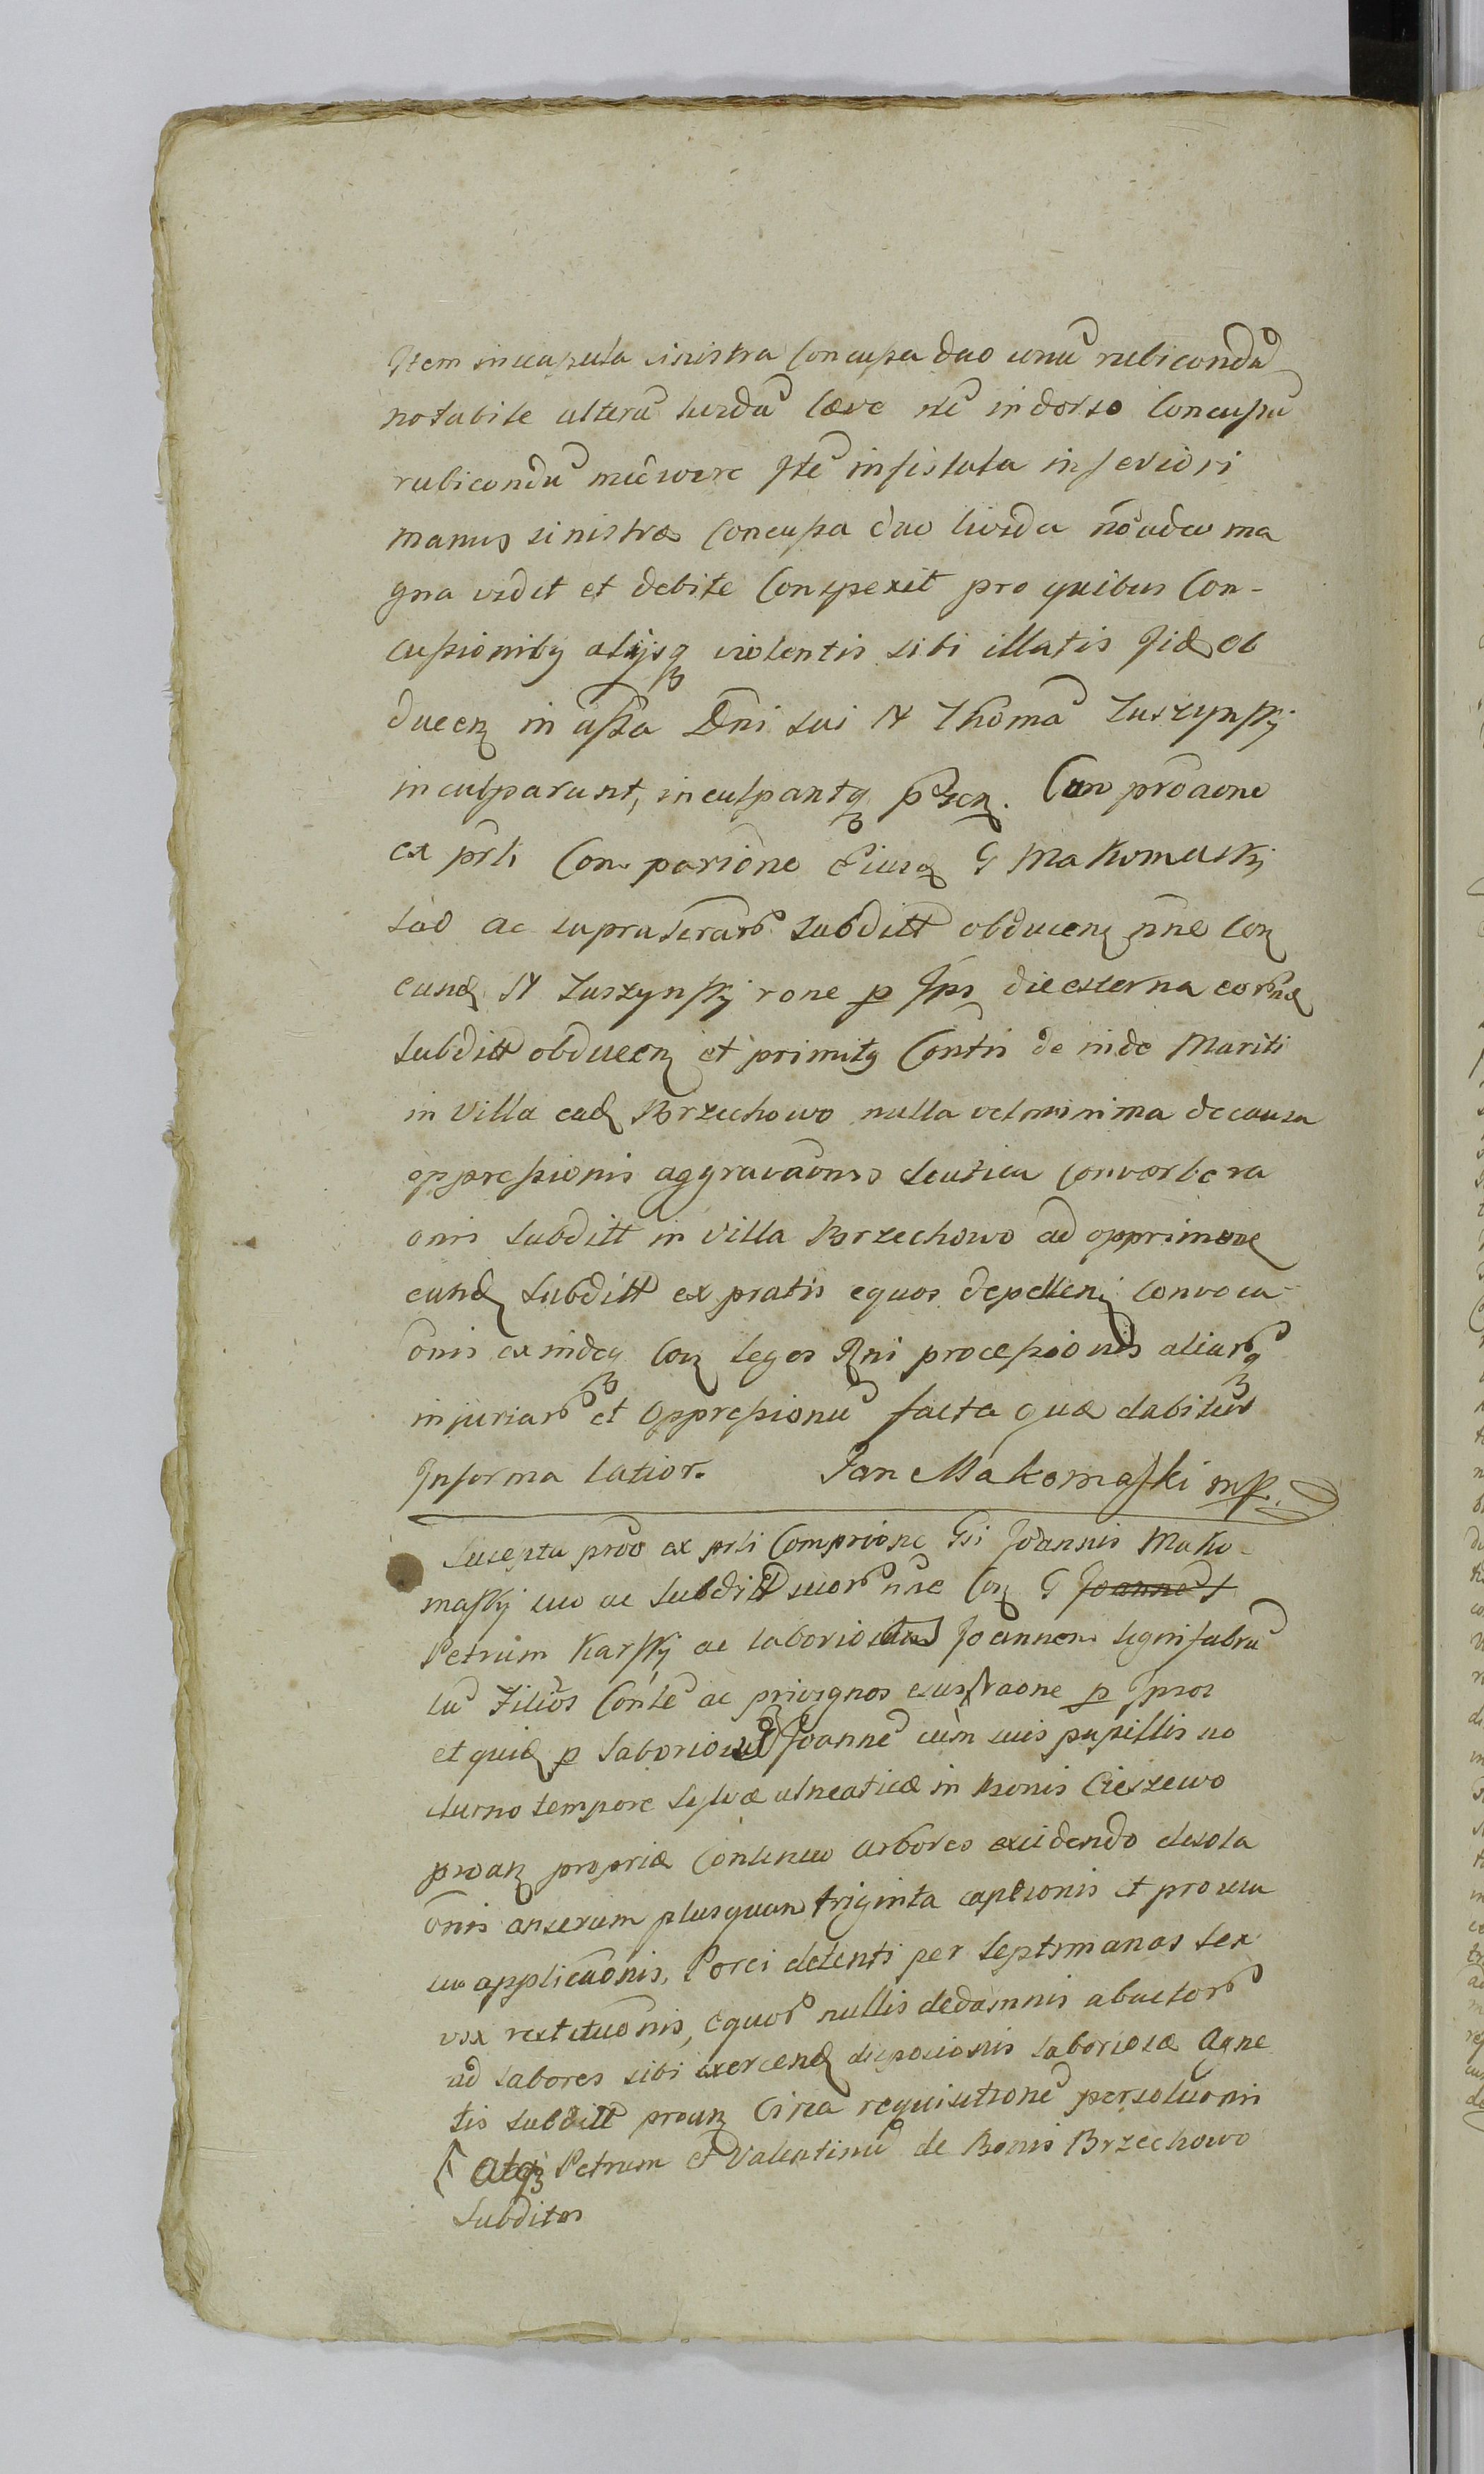 Item in scapula sinistra Concussa duo unũ rubicondũ
notabile alterũ lividũ leve itẽ in dorso Concussũ
rubicondũ mediocre Itẽ in fistula inferiori
manus sinistræ Concussa duo livida nõ adeo ma
gna vidit et debite Conspexit pro quibus Con-
cussionibq alijsq violentis sibi illatis Iid Ob
ducen in assta Dni sui N Thomã Zuszynskj
inculparunt, inculpantq pñten. Cum proaone
ex prli Comparione Eiusd G Makomaskj
suo ac suprascrarũ Subditt obducen nne Con
eund N Zuszynskj rone p Ips die externa eorund
Subditt obducen et primitq Contis de nide Mariti
in Villa ead Brzechowo nulla vel minima de causa
oppressionis aggravaonis scutica Converbera
onis Subditt in Villa Brzechowo ad opprimen
eund Subditt ex pratis equos depellen Convoca
onis exindeq Con leges Rni processionis aliarũq
injuriarũ et Oppressionũ facta quæ dabitur
In forma latior. Jan Makomaski mp.
Suscepta proo ex prli Comprione Gsi Joannis Mako-
maskj suo ac Subditt suorũ nne Con G Joannẽ
Petrum Karskj ac laboriosũ Joannem lignifabrũ
tũ Filios Contẽ ac privignos eius raone p Ipsos
et quid p Laboriosũ Joannẽ cum suis pupillis no
cturno tempore Sylvæ alneaticæ in Bonis Cieszewo
proan propriæ Continuo arbores excidendo desola
onis anserum plusquam triginta captionis et pro usu
suo applicaonis, Porci detenti per Septimanas Sex
vix restituonis, Equorũ nullis de damnis abactorũ
ad labores sibi exercend disposionis laboriosæ Agne
tis Subditt proan Circa requisitionẽ persoluonis
Atq Petrum et Valentinũ de Bonis Brzechowo
Subditos